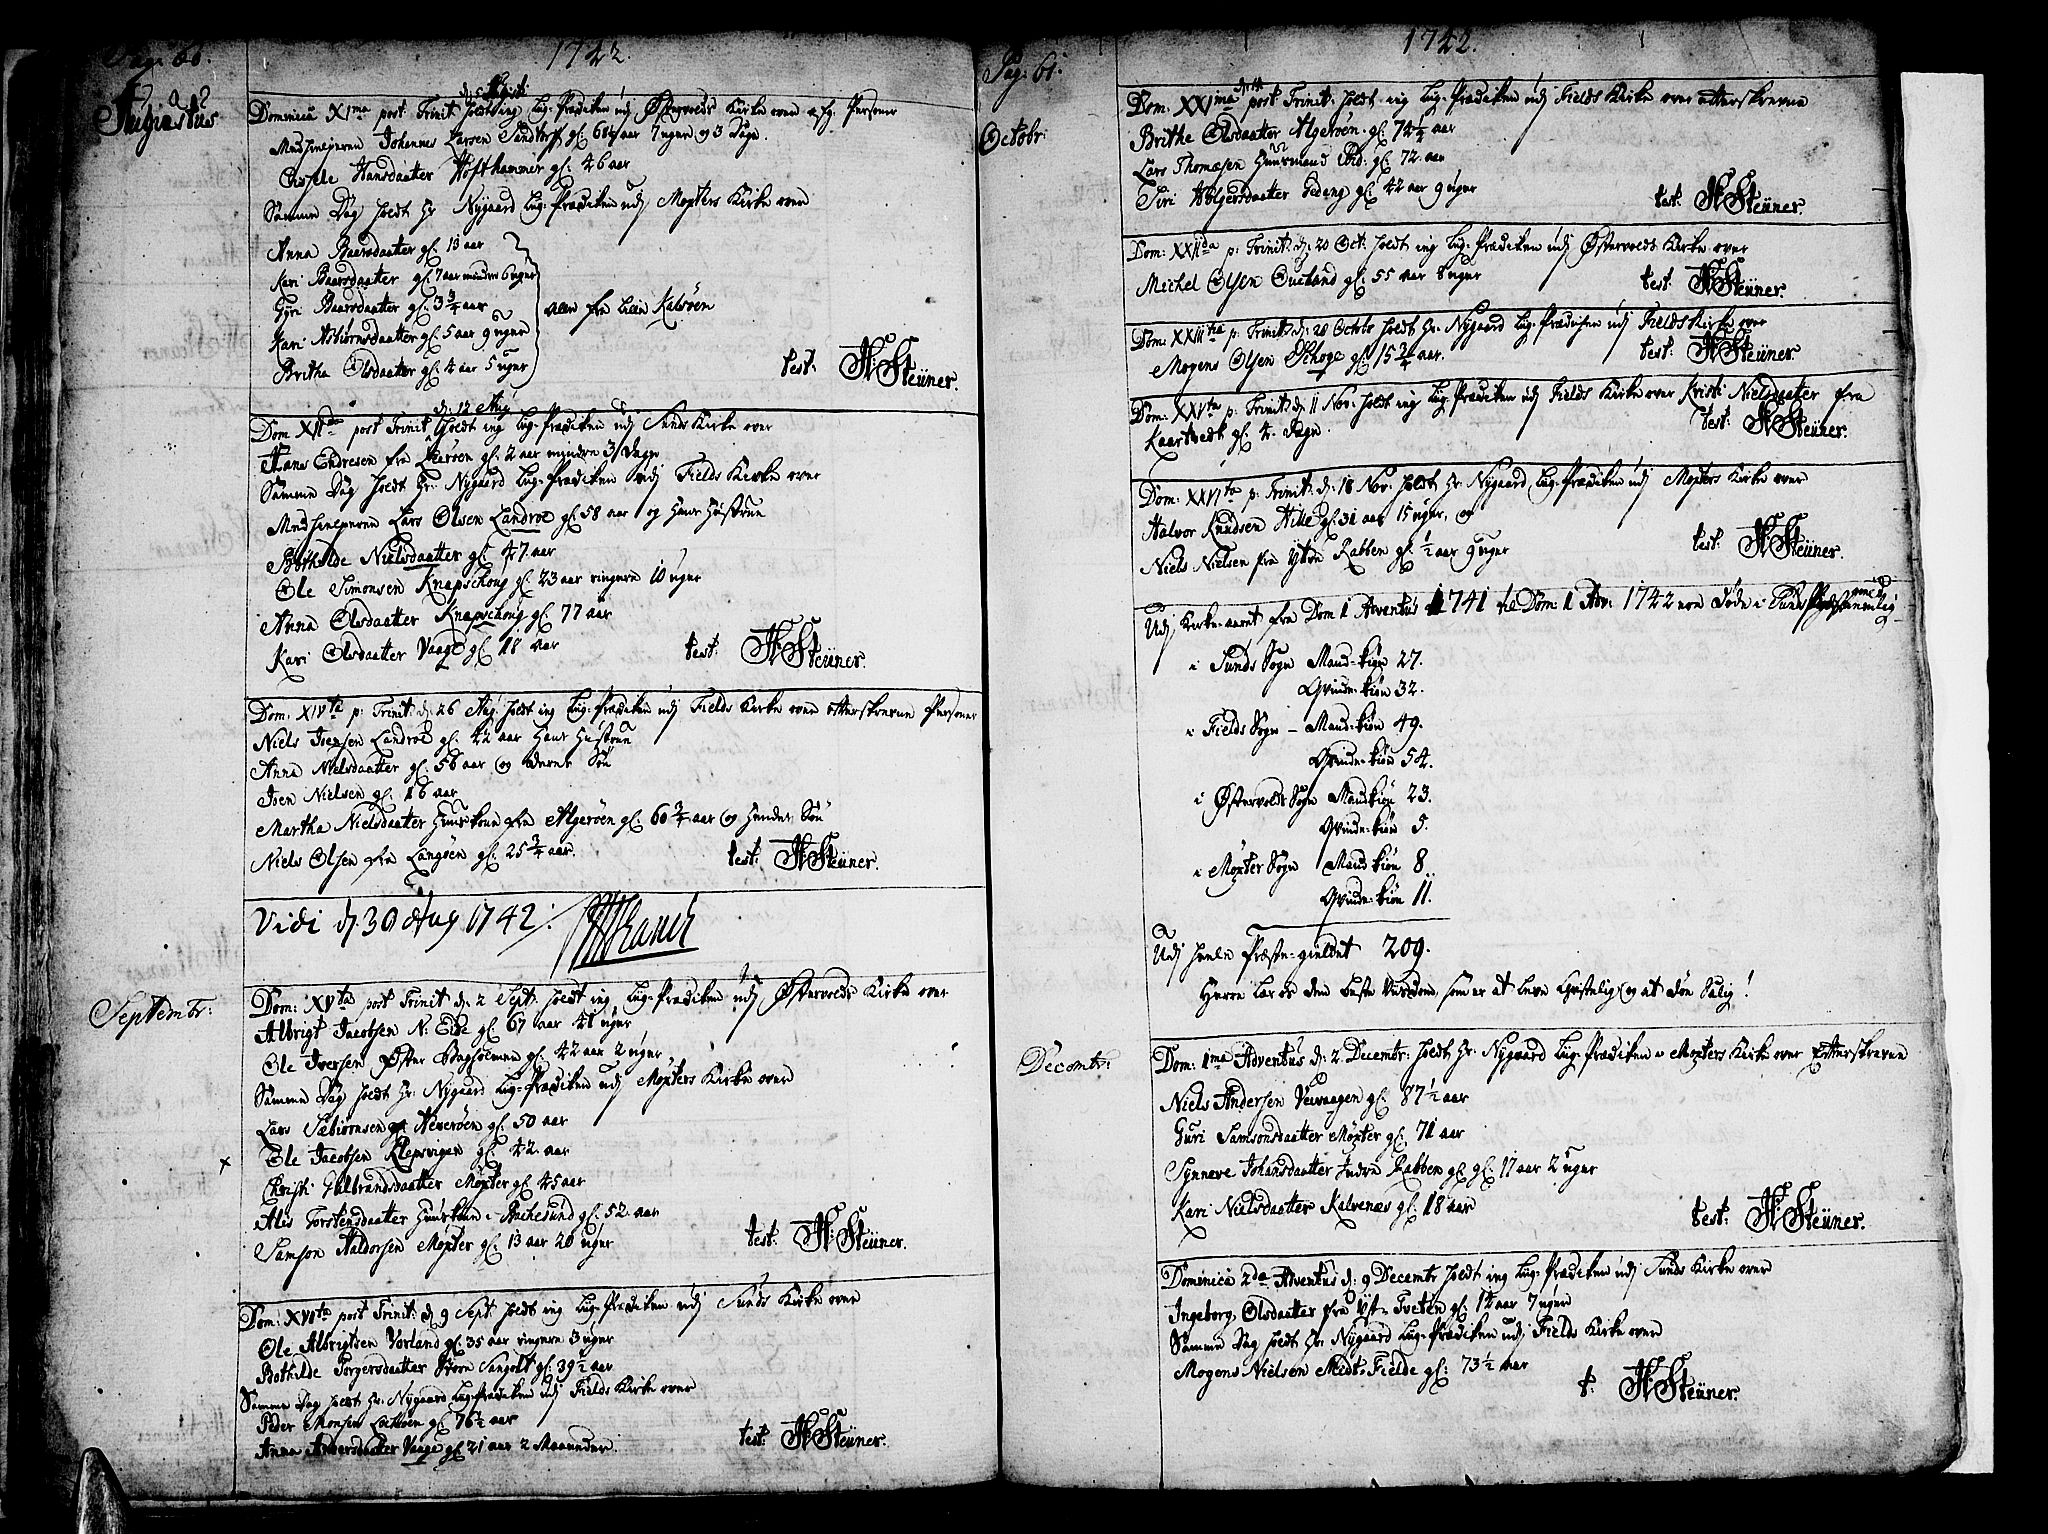 Pag: 60.
1742.
Augustus
d: 5 Augusti
Dominica XIma post Trinit holdt ieg Liig-Prædiken udj Østervolds Kirke over efg. Personer
Medhielperen Johannes Larsen Sandtorf gl. 60½ aar 7 uger og 3 Dage.
Gissele Hansdaatter Hofthammer gl. 46 aar
Samme Dag holdt Hr Nygaard Liig-Prædiken udj Møxters Kirke over
Anna Baarsdaatter gl. 13 aar
Kari Baarsdaatter gl. 7 aar mindre 6 uger
Gyri Baarsdaatter gl. 3¾ aar
alle fra Lille Kalsøen
Kari Asbiørnsdaatter gl. 5 aar 9 uger
Britha Olsdaatter gl. 4 aar 5 uger
test: H: Steüner.
d: 12 Aug
Dom XIIma post Trinit holdt ieg Liig-Prædiken udj Sunds Kirke over
Hans Endresen fra Lerøen gl. 2 aar mindre 3 Dage
Samme Dag holdt Hr: Nygaard Liig-Prædiken udj Fields Kirke over
Medhielperen Lars Olsen Landroe gl. 58 aar og Hans Hustrue
Bothilde Nielsdaatter gl. 47 aar
Ole Simonsen Knapschong gl. 23 aar ringere 10 uger
Anna Olsdaatter Knapschong gl. 77 aar
Kari Olsdaatter Vaage gl. 18 aar
test: H: Steüner.
Dom: XIVta p: Trinit d: 26 Aug: holdt ieg Liig-Prædiken udj Fields Kirke over efterskrevne Personer
Niels Joensen Landroe gl. 42 aar Hans Hustrue
Anna Nielsdaatter gl. 56 aar og deres Søn
Joen Nielsen gl. 16 aar
Martha Nielsdaatter Huuskone fra Algerøen gl. 60¾ aar og Hendes Søn
Niels Olsen fra Langøen gl. 25¾ aar.
test: H: Steüner.
Vidi d. 30 Aug 1742:
Septembr:
Dom: XVta post Trinit d: 2 Sept. holdt ieg Liig-Prædiken udj Østervolds Kirke over
Albrigt Jacobsen N. Eide gl. 67 aar 41 uger
Ole Iversen Øster Bagholmen gl. 42 aar 2 uger
Samme Dag holdt Hr Nygaard Liig-Prædiken udj Møxters Kirke over
Lars Sæbiørnsen Neverøen gl. 50 aar
Ole Jacobsen Klepsvigen gl. 42 aar
Christi Gulbrandsdaatter Møxter gl. 45 aar
Alis Torstensdaatter Huuskone i Bachesund gl. 52 aar
Samson Haldorsen Møxter gl. 13 aar 20 uger
test: H: Steüner.
Dom: XVIta post Trinit: d 9 Sept holdt ieg Liig-Prædiken udj Sunds Kirke over
Ole Albrigtsen Vorland gl. 35 aar ringere 3 uger
Bothilde Torgersdaatter Store Sangolt gl. 39½ aar
Samme Dag holdt Hr: Nygaard Liig-Prædiken udj Fields Kirke over
Peder Monsen Lokøen gl. 76½ aar
Anna Andersdaatter Vaage gl 21 aar 2 Maaneder.
test: H: Steüner.
Pag: 61.
1742.
Octobr:
Dom: XXIma post Trinit: holdt ieg Liig-Prædiken udj Fields Kirke over efterskrevne
Brithe Olsdaatter Algerøen gl. 74½ aar
Lars Thomæsen Huusmand Ibid: gl. 72 aar
Siri Holgersdaatter Tedeng gl. 42 aar 9 uger
test: H: Steüner.
Dom: XXIIda p: Trinit: d: 20 Oct: holdt ieg Liig-Prædiken udj Østervolds Kirke over
Michel Olsen Queland gl. 55 aar 8 uger
test: H: Steüner.
Dom: XXIIItia p: Trinit: d: 28 Octobr holdt Hr: Nygaard Liig-Prædiken udj Fields Kirke over
Mogens Olsen Schoge gl. 15¾ aar.
test: H: Steüner.
Dom: XXVta p: Trinit: d: 11 Nov: holdt ieg Liig-Prædiken udj Fields Kirke over Kristi Nielsdaater fra
Kaartvedt gl. 4 Dage.
test: H: Steüner.
Dom: XXVIta p: Trinit: d: 18 Nov: holdt Hr Nygaard Liig-Prædiken udj Møxters Kirke over
Halvor Knudsen Hille gl. 31 aar 15 uger, og
Niels Nielsen fra Ytre Rabben gl. ½ aar 9 uger
test: H: Steüner.
Udj Kirke-aaret fra Dom 1 Adventus 1741 til Dom: 1 Adv: 1742 ere døde i Sunds
i Sunds Sogn Mand-kiøn 27.
Qvinde-kiøn 32.
i Fields Sogn - Mand-kiøn 49.
Qvinde-kiøn 54.
i Østervolds Sogn Mandkiøn 23.
Qvinde-kiøn 5.
i Møxter Sogn Mand kiøn 8.
Qvinde-kiøn 11.
Udj heele Præste-gieldet 209.
Herre lær os den beste Viisdom, som er at leve Christelig og at døe Salig!
Decembr:
Dom: 1ma Adventus d: 2 Decembr: holdt Hr: Nygaard Liig-Prædiken i Møxters Kirke over Efterskrevne
Niels Andersen Vervaagen gl. 87½ aar
Guri Samsonsdaatter Møxter gl. 71 aar
Synneve Johansdaatter Indre Rabben gl. gl. 17 aar 2 uger
Kari Nielsdaatter Kalvenæs gl. 18 aar
test: H: Steüner.
Dominica 2da Adventus d: 9 Decembr holdt ieg Liig-Prædiken udj Sunds Kirke over
Ingeborg Olsdaatter fra Yst-Tveten gl. 14 aar 7 uger
Samme Dag holdt Hr: Nygaard Liig-Prædiken udj Fields Kirke over
Mogens Nielsen Midt-Fielde gl: 73½ aar
t: H: Steüner.